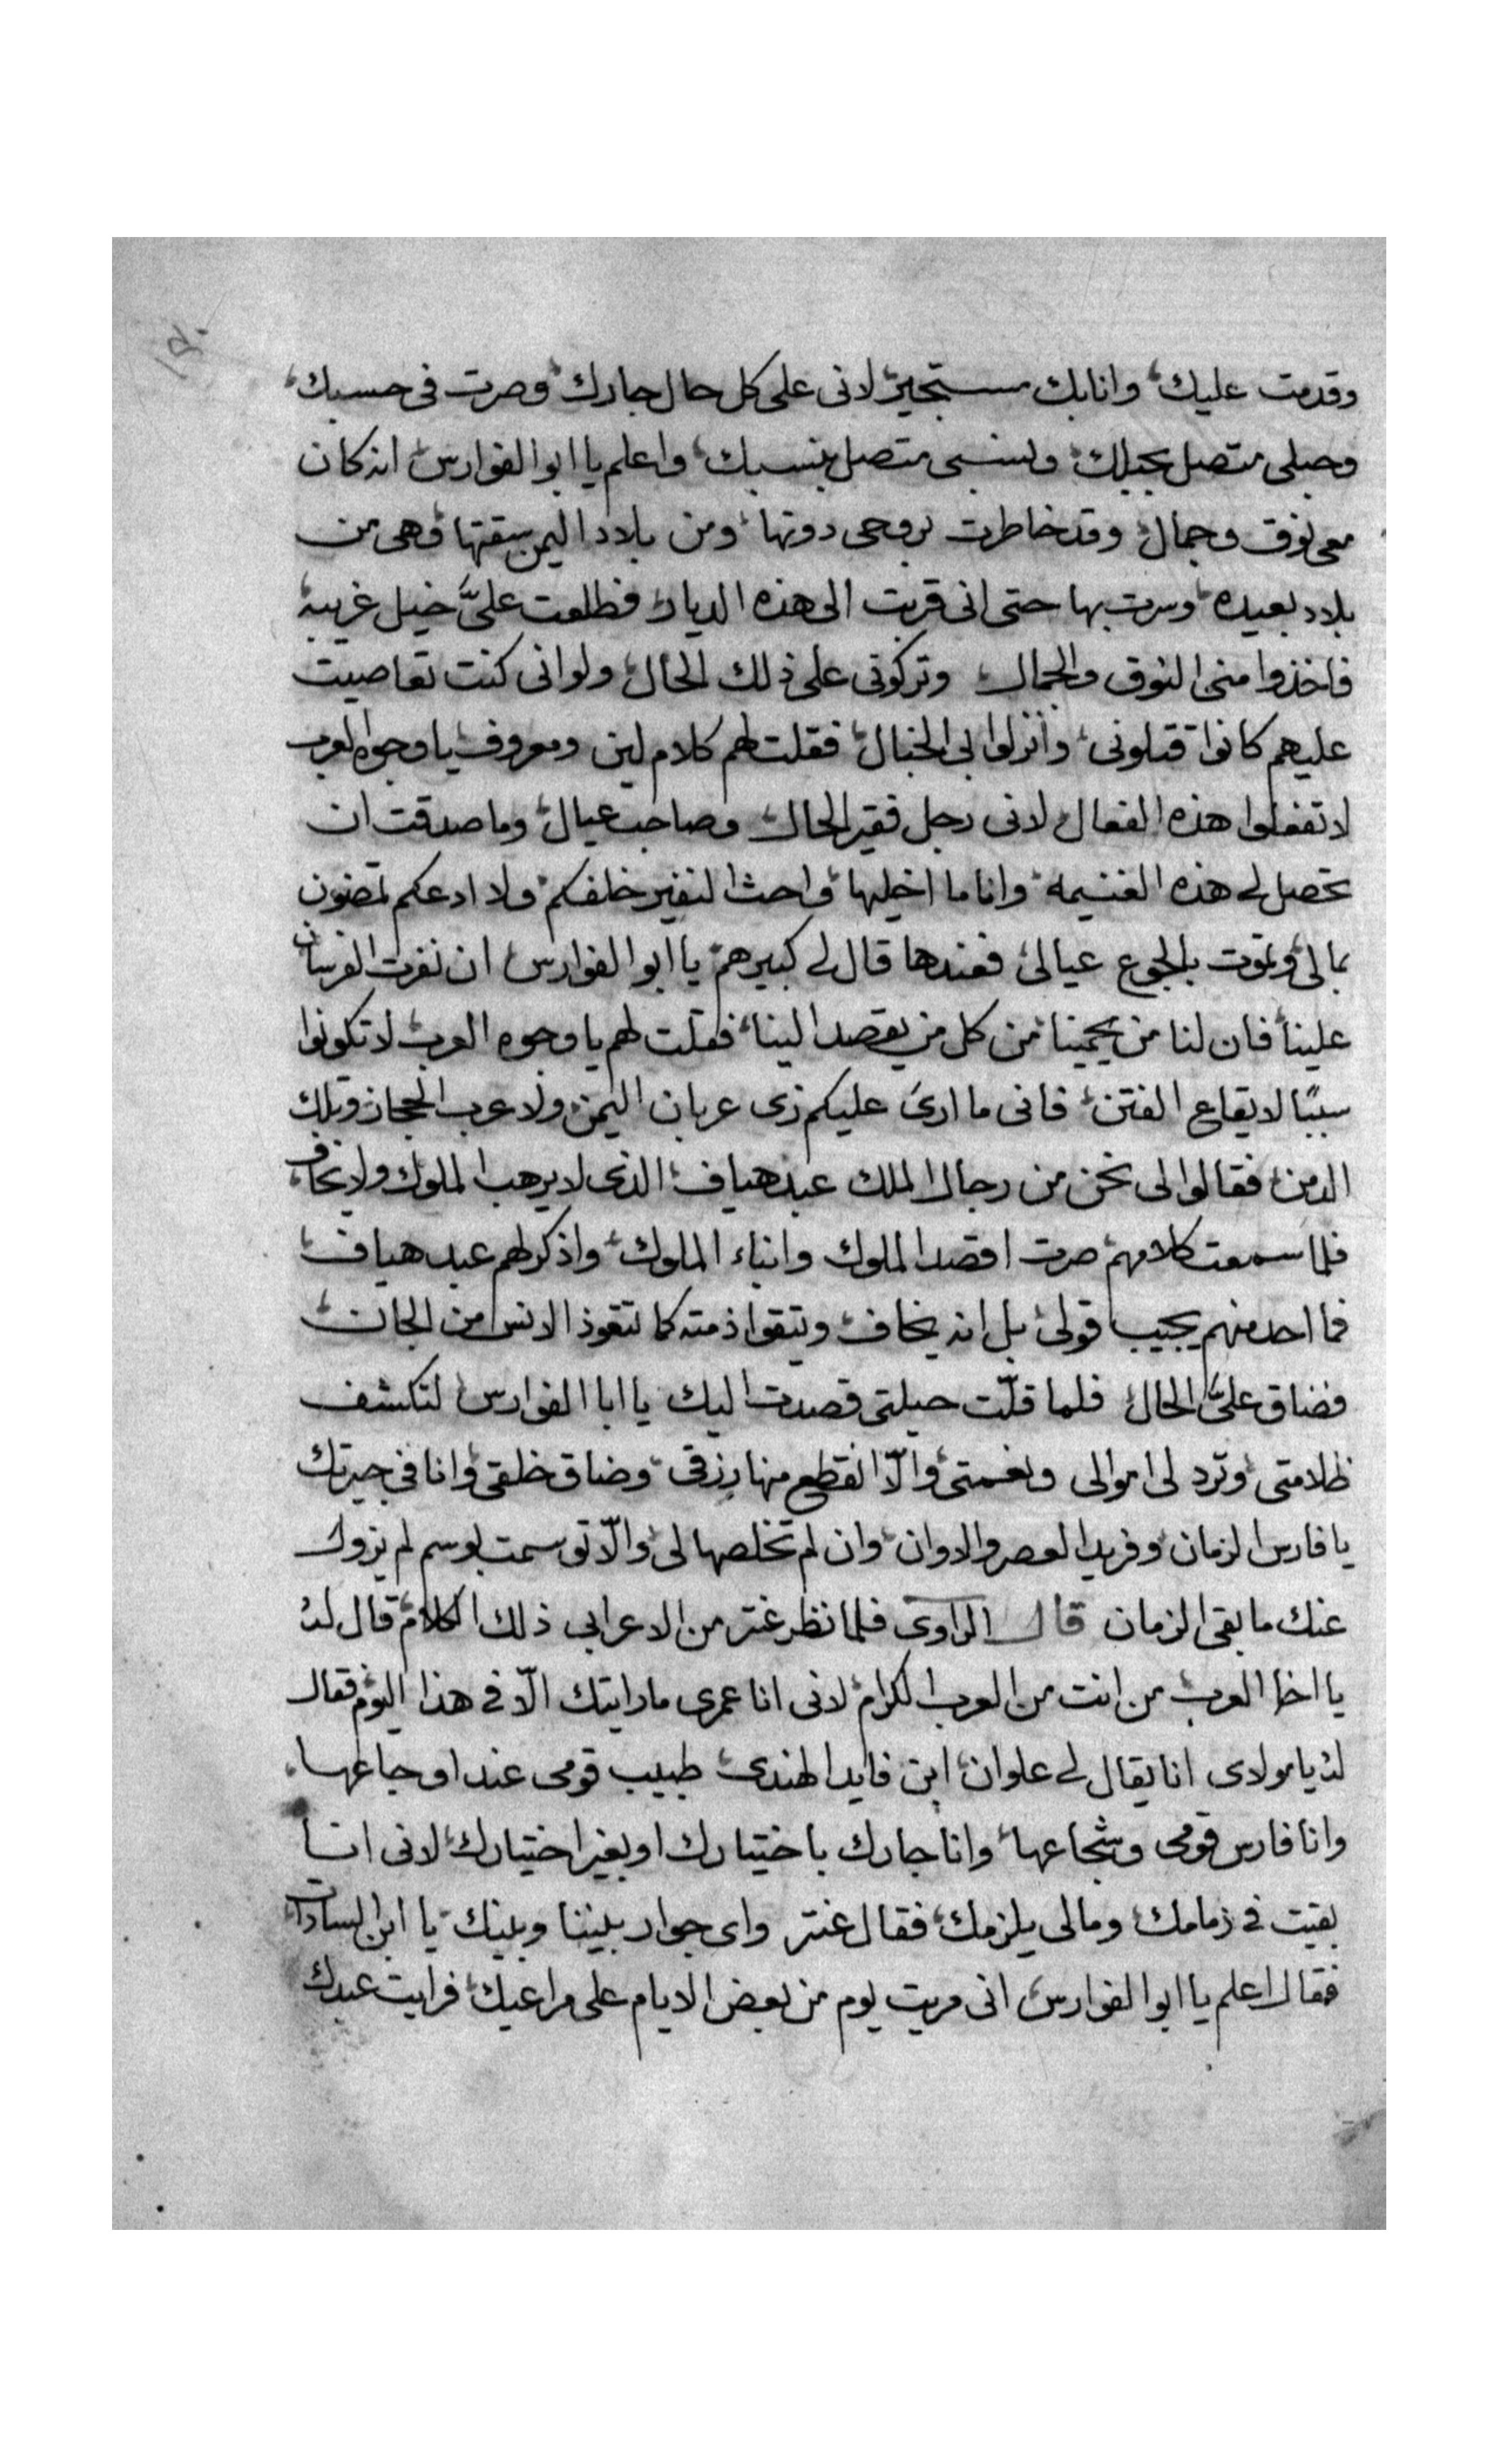 وقدمت عليك وانا بك مستجير لانى على كل حال جارك وصرت فى حسبك
وحبلى متصل بحبلك ونسبى متصل بنسبك واعلم يا ابو الفوارس انه كان
معى نوق وجمال وقد خاطرت بروحى دونها ومن بلاد اليمن سقتها وهى من
بلاد بعيده وسرت بها حتى انى قربت الى هذه الديار فطلعت علىَّ خيل غريبه
فاخذوا منى النوق والجمال وتركونى على ذلك الحال ولو انى كنت تعاصيت
عليهم كانوا قتلونى وانزلوا بى الخبال فقلت لهم كلام لين ومعروف يا وجوه العرب
لا تفعلوا هذه الفعال لانى رجل فقير الحال وصاحب عيال وما صدقت ان
تحصل لى هذه الغنيمه وانا ما اخليها واحث النفير خلفكم ولا ادعكم تمضون
بمالى وتموت بالجوع عيالى فعندها قال لى كبيرهم يا ابو الفوارس ان نفرت الفرسان
علينا فان لنا من يحمينا من كل من يقصد الينا فقلت لهم يا وجوه العرب لا تكونوا
سببًا لايقاع الفتن فانى ما ارى عليكم زى عربان اليمن ولا عرب الحجاز وتلك
الدمن فقالوا لى نحن من رجال الملك عبد هياف الذى لا يرهب الملوك ولا يخاف
فلما سمعت كلامهم صرت اقصد الملوك وابناء الملوك واذكر لهم عبد هياف
فما احد منهم يجيب قولى بل انه يخاف ويتقوا ذمته كما تتعوذ الانس من الجان
فضاق علىَّ الحال فلما قلّت حيلتى قصدت اليك يا ابا الفوارس لتكشف
ظلامتى وترد لى اموالى ونعمتى والّا انقطع منها رزقى وضاق خلقى وانا فى جيرتك
يا فارس الزمان وفريد العصر والاوان وان لم تخلصها لى والّا توسمت بوسم لم يزول
عنك ما بقى الزمان قال الراوى فلما نظر عنتر من الاعرابى ذلك الكلام قال له
يا اخا العرب من انت من العرب الكرام لانى انا عمرى ما رايتك الّا فى هذا اليوم فقال
له يا مولاى انا يقال لى علوان ابن فايد الهندى طبيب قومى عند اوجاعها
وانا فارس قومى وشجاعها وانا جارك باختيارك او بغير اختيارك لانى انا
بقيت فى زمامك ومالى يلزمك فقال عنتر واى جوار بيننا وبينك يا ابن السادات
فقال اعلم يا ابو الفوارس انى مريت يوم من بعض الايام على مراعيك فرايت عبدك